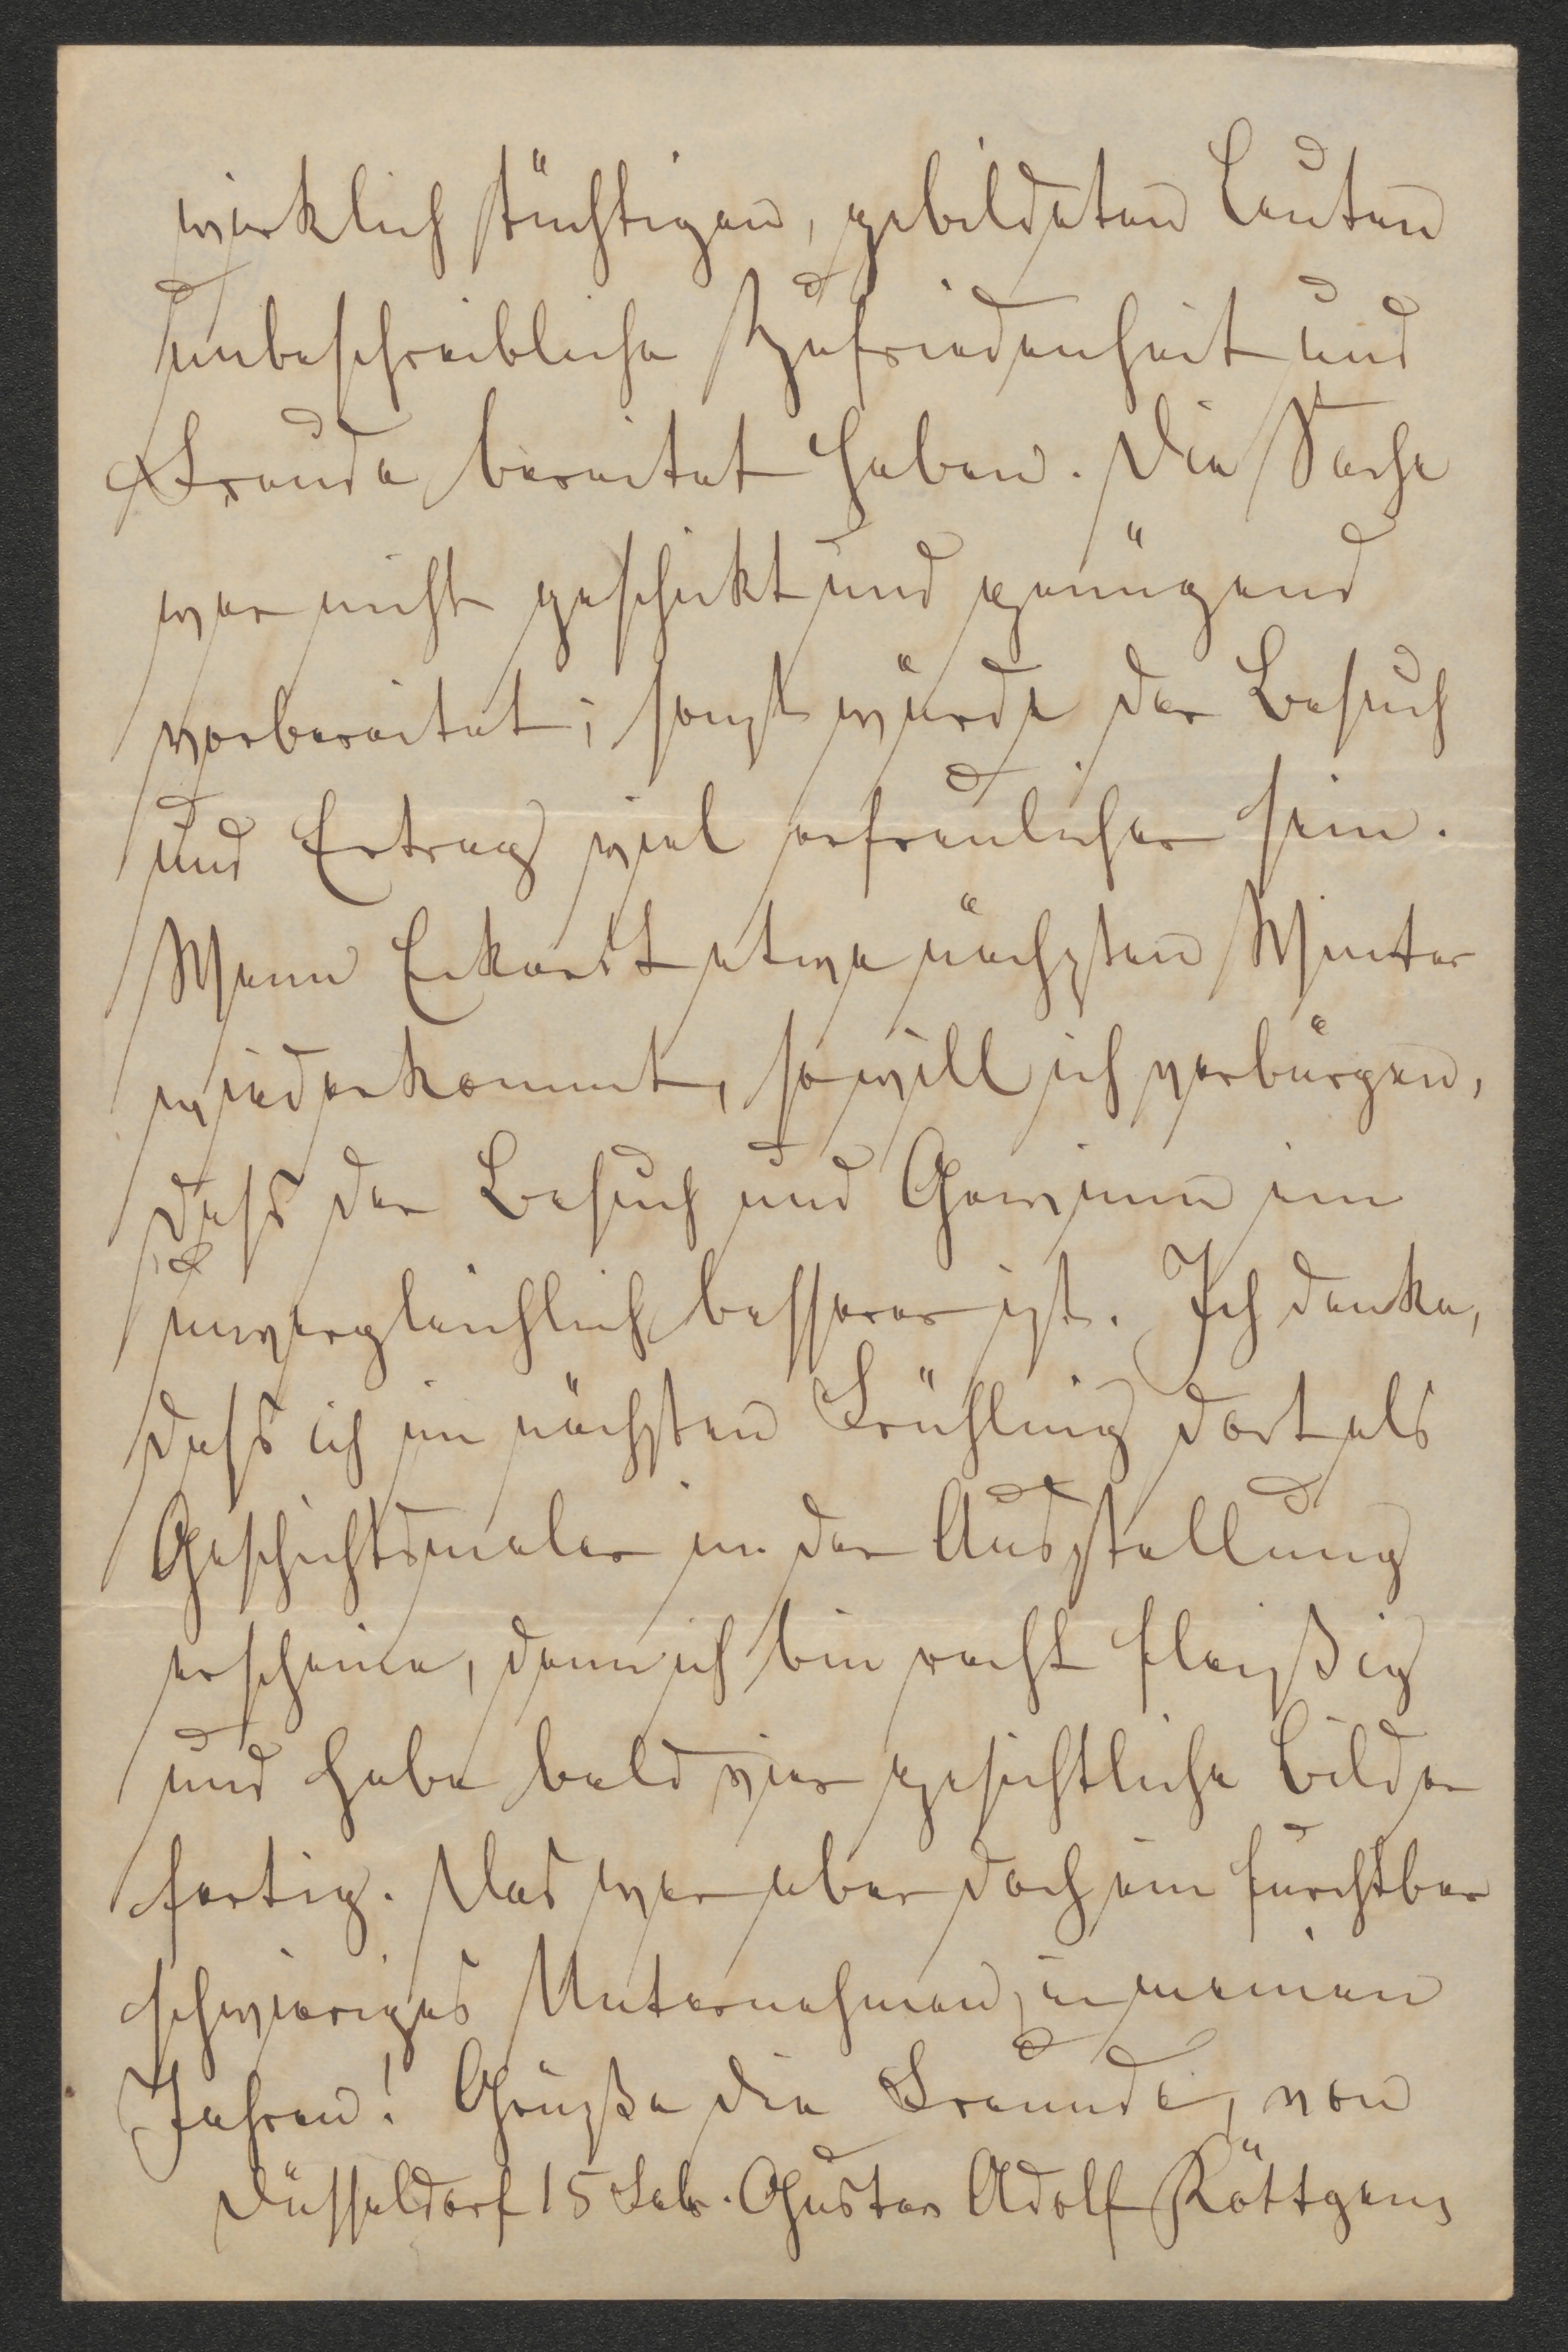 wirklich tüchtigen, gebildeten Leuten
unbeschreibliche Zufriedenheit und
Freude bereitet haben. Die Sache
war nicht geschikt und genügend
vorbereitet; sonst würde der Besuch
und Ertrag viel erfreulicher sein.
Wenn Eckardt etwa nächsten Winter
wiederkommt, so will ich verbürgen,
daß der Besuch und Gewinn ein
unvergleichlich besserer ist. Ich denke,
daß ich im nächsten Frühling dort als
Geschichtsmaler in der Ausstellung
erscheine, denn ich bin recht fleißig
und habe bald vier geschichtliche Bilder
fertig. Das war aber doch ein furchtbar
schwieriges Unternehmen, in meinen
Jahren! Grüße die Freunde, von
Düsseldorf 15 Feb. Gustav Adolf Köttgen